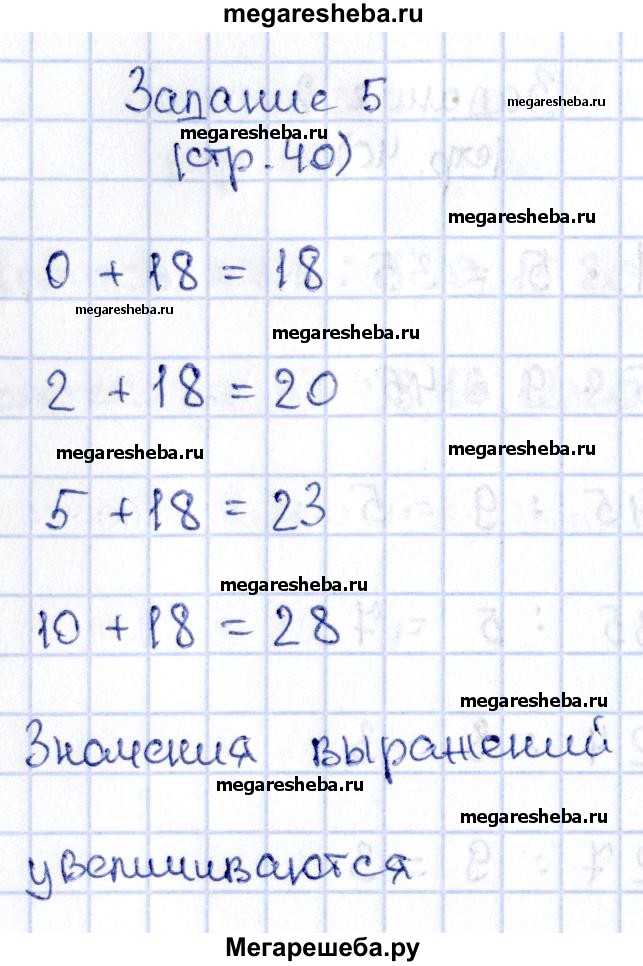 megaresheba.ru
Задание 5
megaresheba.ru
megaresheba.ru
(стр. 40)
megaresheba.ru
0 + 18 = 18
megaresheba.ru
megaresheba.ru
2 + 18 = 20
megaresheba.ru
megaresheba.ru
5 + 18 = 23
megaresheba.ru
10 + 18 = 28
megaresheba.ru
Значения выражений
megaresheba.ru
megaresheba.ru
увеличиваются
Мегарешеба.ру